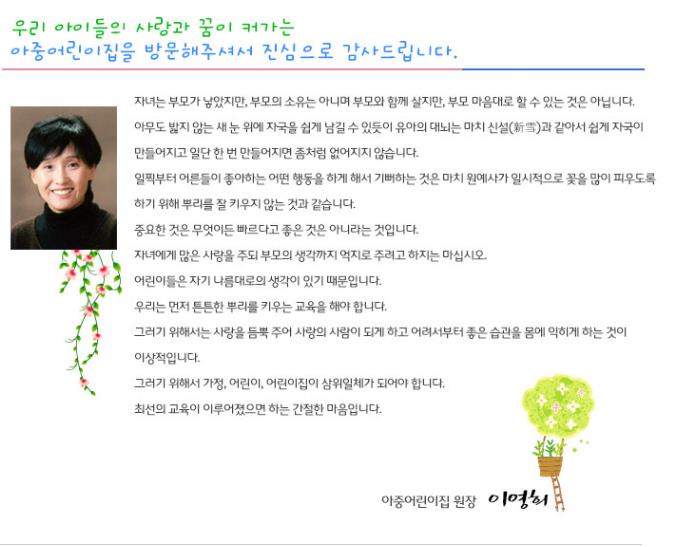 우리 아이들의 사랑과 꿈이 커가는
아중어린이집을 방문해주셔서 진심으로 감사드립니다.
자녀는 부모가 낳았지만, 부모의 소유는 아니며 부모와 함께 살지만, 부모 마음대로 할 수 있는 것은 아닙니다.
아무도 밟지 않는 새 눈 위에 자국을 쉽게 남길 수 있듯이 유아의 대뇌는 마치 신설(新雪)과 같아서 쉽게 자국이
만들어지고 일단 한 번 만들어지면 좀처럼 없어지지 않습니다.
일찍부터 어른들이 좋아하는 어떤 행동을 하게 해서 기뻐하는 것은 마치 원예사가 일시적으로 꽃을 많이 피우도록
하기 위해 뿌리를 잘 키우지 않는 것과 같습니다.
중요한 것은 무엇이든 빠르다고 좋은 것은 아니라는 것입니다.
자녀에게 많은 사랑을 주되 부모의 생각까지 억지로 주려고 하지는 마십시오.
어린이들은 자기 나름대로의 생각이 있기 때문입니다.
우리는 먼저 튼튼한 뿌리를 키우는 교육을 해야 합니다.
그러기 위해서는 사랑을 듬뿍 주어 사랑의 사람이 되게 하고 어려서부터 좋은 습관을 몸에 익히게 하는 것이
이상적입니다.
그러기 위해서 가정, 어린이, 어린이집이 삼위일체가 되어야 합니다.
최선의 교육이 이루어졌으면 하는 간절한 마음입니다.
아중어린이집 원장 이영희